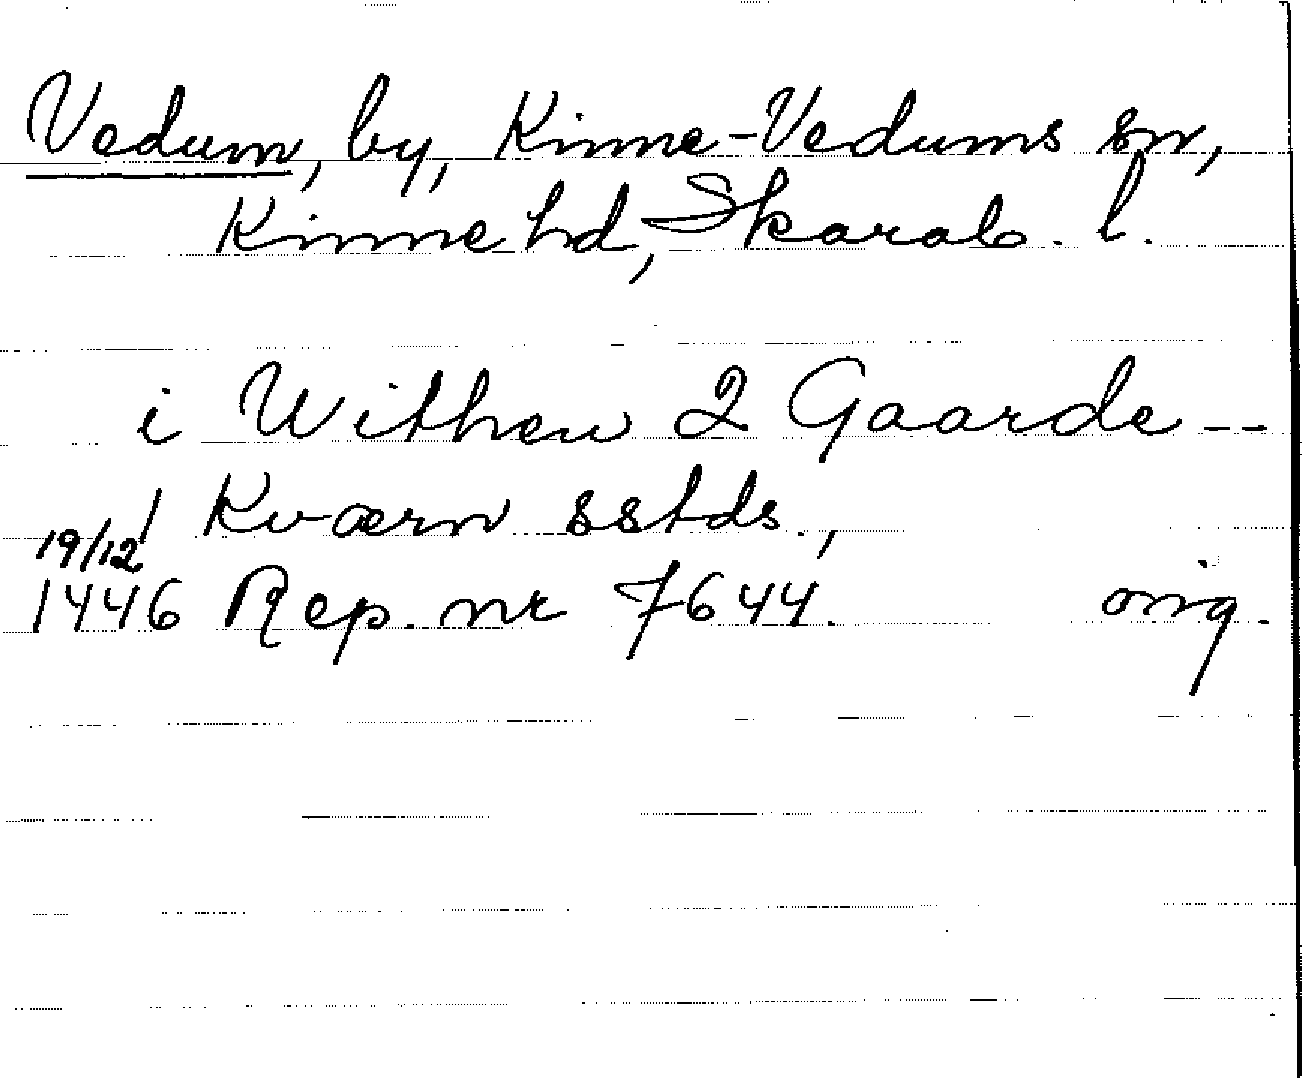 Vedum, by, Kinne-Vedums sn,
Kinne hd, Skarab. l.
i Withen 2 Gaarde --
Kværn sstds.,
19/12
1446 Rep. nr 7644. orig.